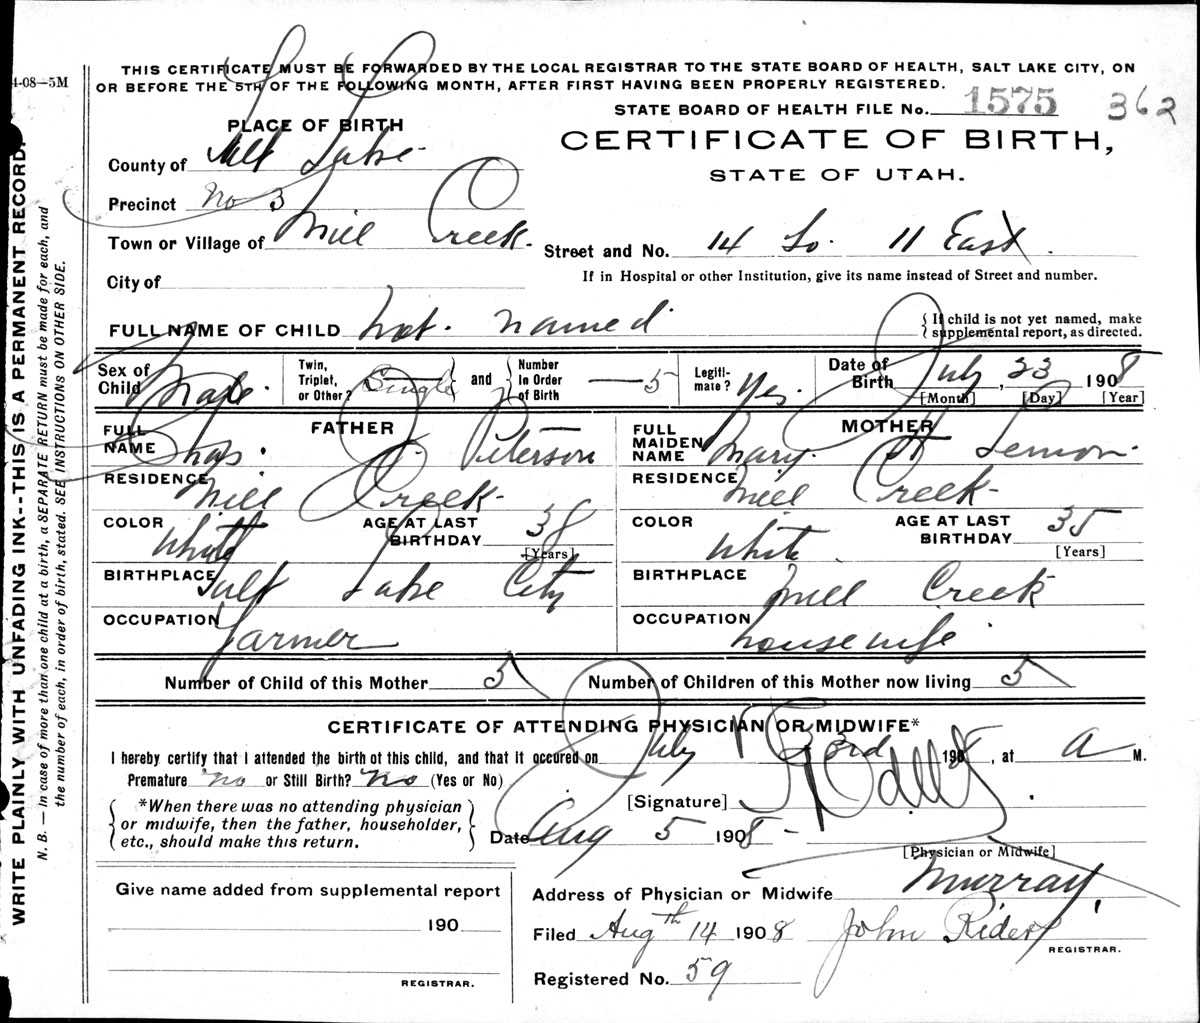 4-08—5M
THIS CERTIFICATE MUST BE FORWARDED BY THE LOCAL REGISTRAR TO THE STATE BOARD OF HEALTH, SALT LAKE CITY, ON
OR BEFORE THE 5TH OF THE FOLLOWING MONTH, AFTER FIRST HAVING BEEN PROPERLY REGISTERED.
STATE BOARD OF HEALTH FILE No. 1575 362
PLACE OF BIRTH
CERTIFICATE OF BIRTH,
STATE OF UTAH.
County of Salt Lake
Precinct No 3
Town or Village of Mill Creek.
Street and No. 14 So. 11 East.
If in Hospital or other Institution, give its name instead of Street and number.
City of
FULL NAME OF CHILD not. named
{ If child is not yet named, make
supplemental report, as directed.
Sex of Child Male.
Twin, Triplet, or Other? Single } and { Number In Order of Birth — 5
Legiti-mate? Yes.
Date of Birth July, 23 1908
[Month] [Day] [Year]
FATHER
FULL NAME Chas. C. Peterson
RESIDENCE Mill Creek-
COLOR White
AGE AT LAST BIRTHDAY 38
[Years]
BIRTHPLACE Salt Lake City
OCCUPATION Farmer
MOTHER
FULL MAIDEN NAME Mary. H Lemon.
RESIDENCE Mill Creek-
COLOR White
AGE AT LAST BIRTHDAY 35
[Years]
BIRTHPLACE Mill Creek
OCCUPATION housewife
Number of Child of this Mother 5
Number of Children of this Mother now living 5
CERTIFICATE OF ATTENDING PHYSICIAN OR MIDWIFE*
I hereby certify that I attended the birth of this child, and that it occured on July 23rd 1908, at A M.
Premature no or Still Birth? No (Yes or No)
{ *When there was no attending physician
or midwife, then the father, householder,
etc., should make this return. }
[Signature]
Date Aug 5 1908-
[Physician or Midwife]
Address of Physician or Midwife Murray.
Filed Aug 14th 1908 John Rider
REGISTRAR.
Registered No. 59
Give name added from supplemental report
190
REGISTRAR.
WRITE PLAINLY WITH UNFADING INK--THIS IS A PERMANENT RECORD.
N. B. — In case of more than one child at a birth, a SEPARATE RETURN must be made for each, and
the number of each, in order of birth, stated. SEE INSTRUCTIONS ON OTHER SIDE.